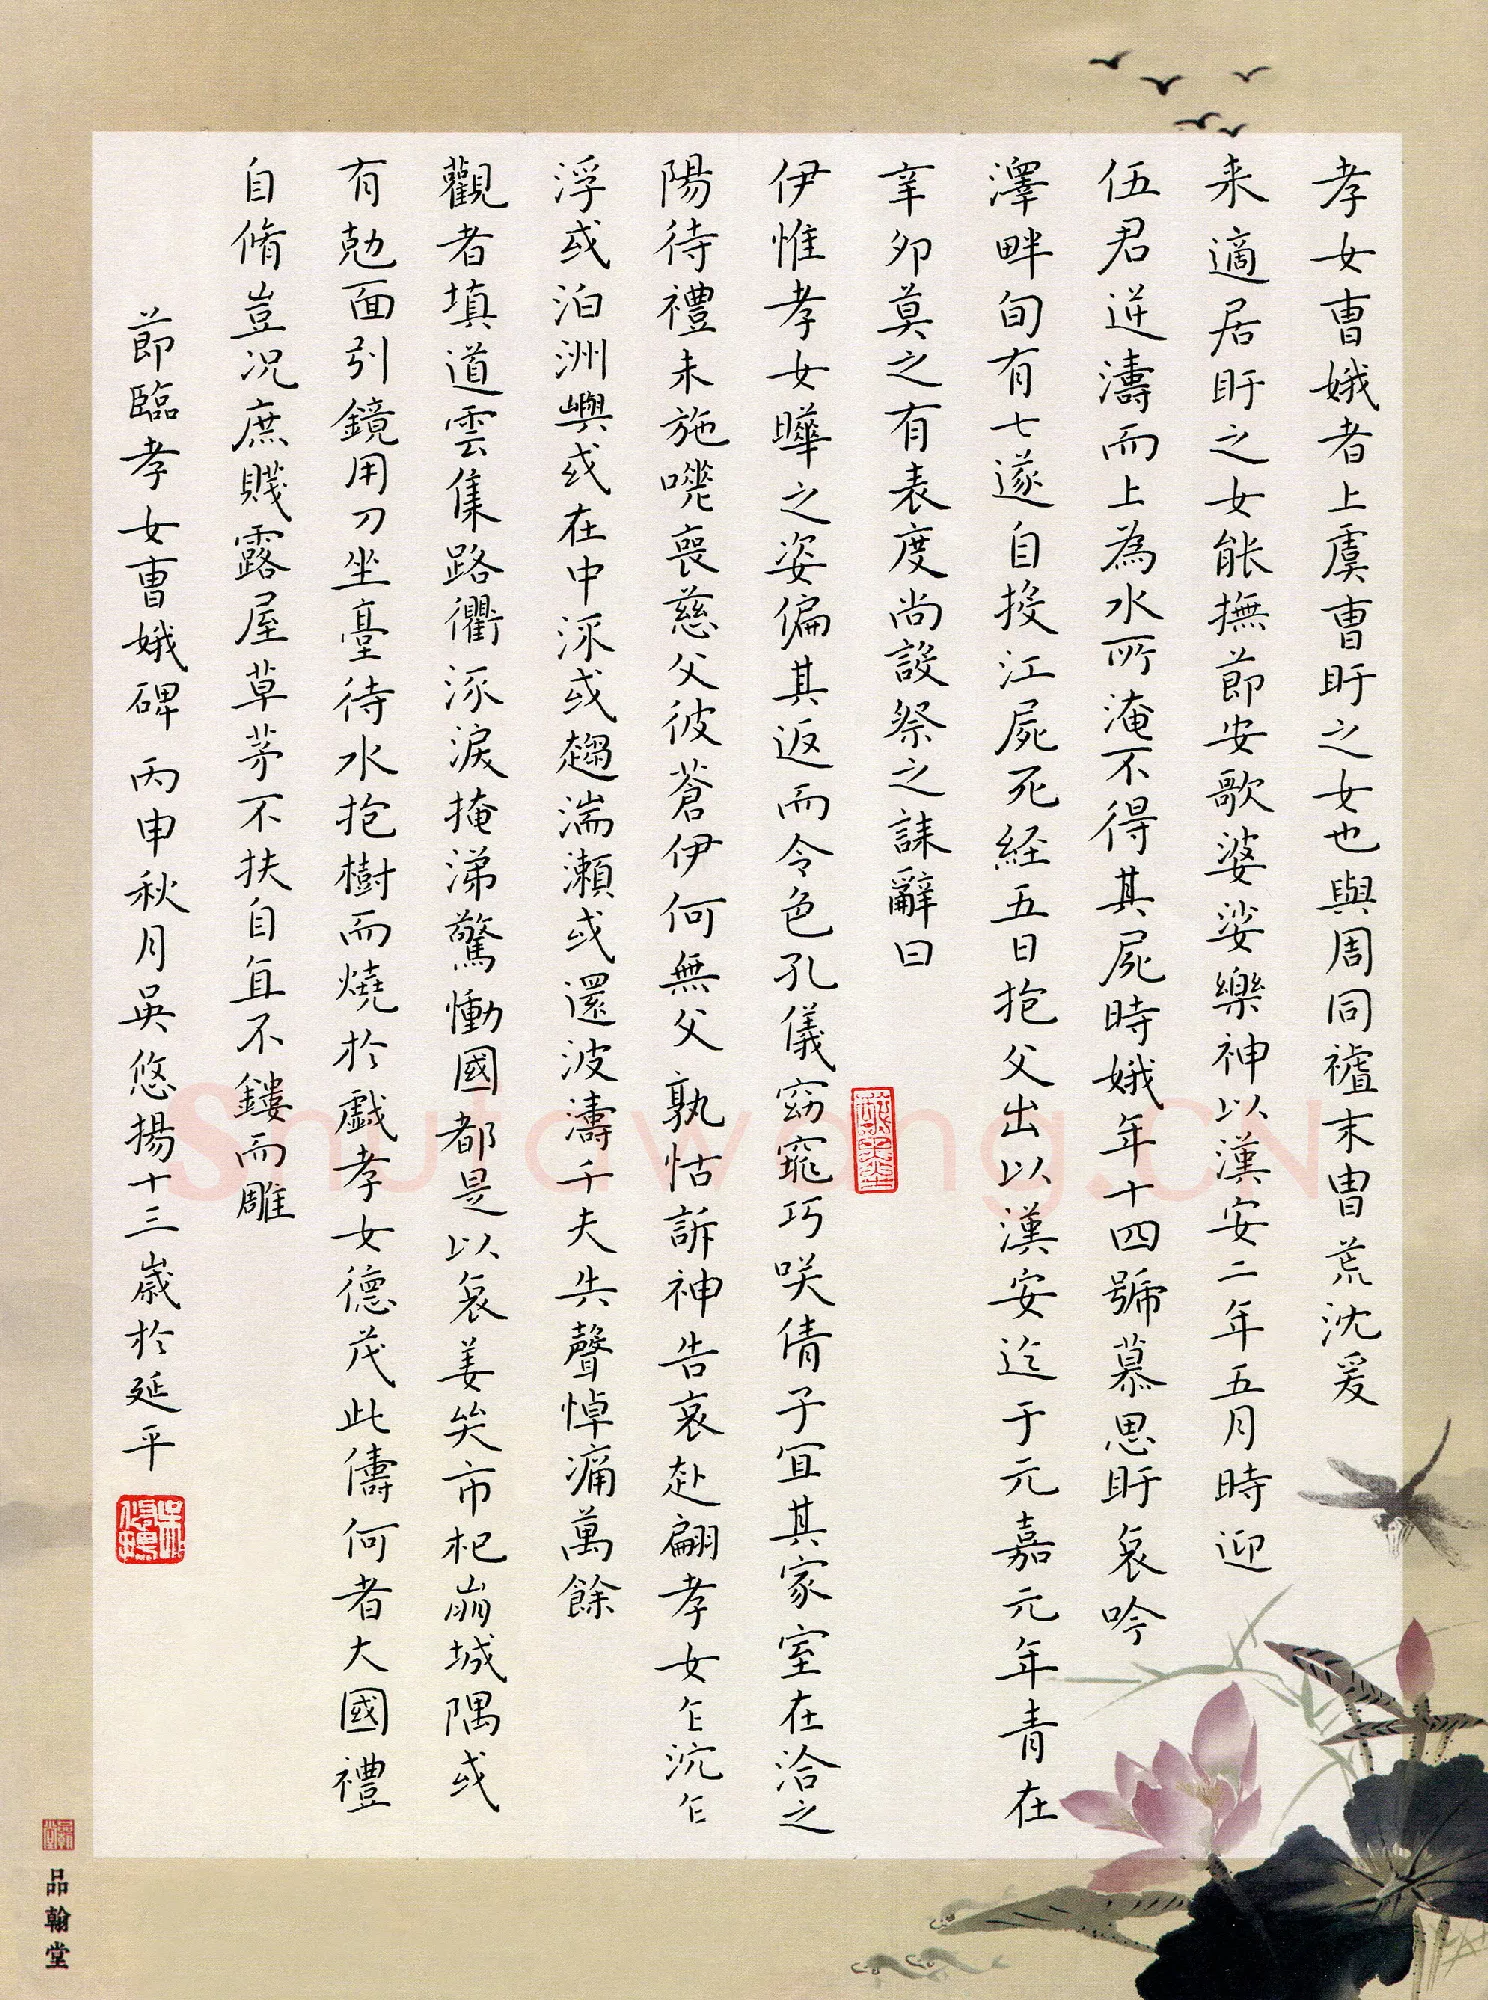 孝女曹娥者上虞曹盱之女也與周同禇末冑荒沈爰
来適居盱之女能撫節安歌婆娑樂神以漢安二年五月時迎
伍君逆濤而上為水所淹不得其屍時娥年十四號慕思盱哀吟
澤畔旬有七遂自投江屍死経五日抱父出以漢安迄于元嘉元年青在
辛卯莫之有表度尚設祭之誄辭曰
伊惟孝女曄之姿偏其返而令色孔儀窈窕巧咲倩子宜其家室在洽之
陽待禮未施嗟喪慈父彼蒼伊何無父孰怙訴神告哀赴翩孝女乍沉乍
浮或泊洲嶼或在中流或趨湍瀬或還波濤千夫失聲悼痛萬餘
觀者填道雲集路衢流淚掩涕驚慟國都是以哀姜矣市杞崩城隅或
有勀面引鏡用刀坐臺待水抱樹而燒於戯孝女德茂此儔何者大國禮
自脩豈况庶賤露屋草茅不扶自直不鏤而雕
節臨孝女曹娥碑 丙申秋月吳悠揚十三歲於延平
品翰堂
Shufawang.CN